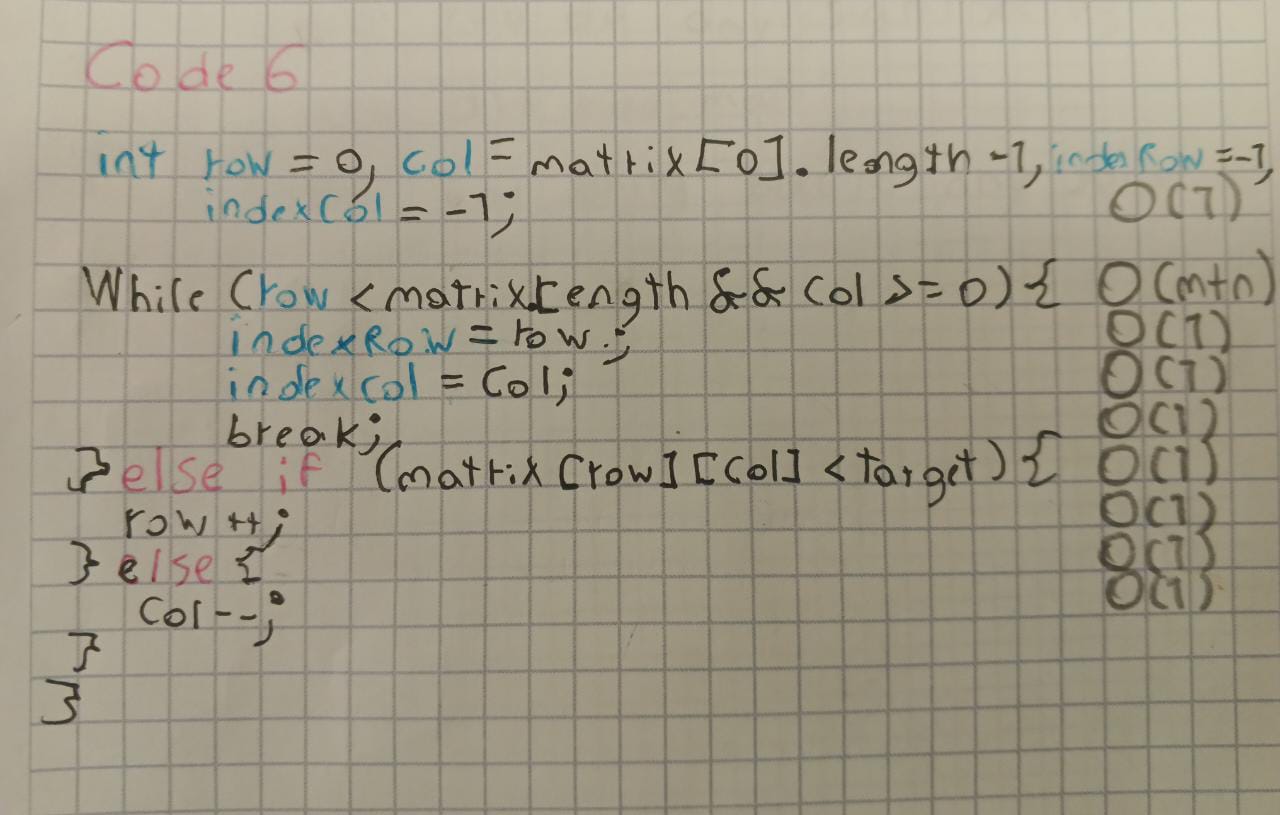 Code 6
int row = 0, col = matrix[0].length -1, indexRow = -1,
indexCol = -1; O(1)
While (row < matrix.length && Col >= 0) { O(m+n)
indexRow = row.; O(1)
indexcol = Col; O(1)
break; O(1)
} else if (matrix [row] [Col] < Target) { O(1)
row ++; O(1)
} else { O(1)
Col--; O(1)
}
}